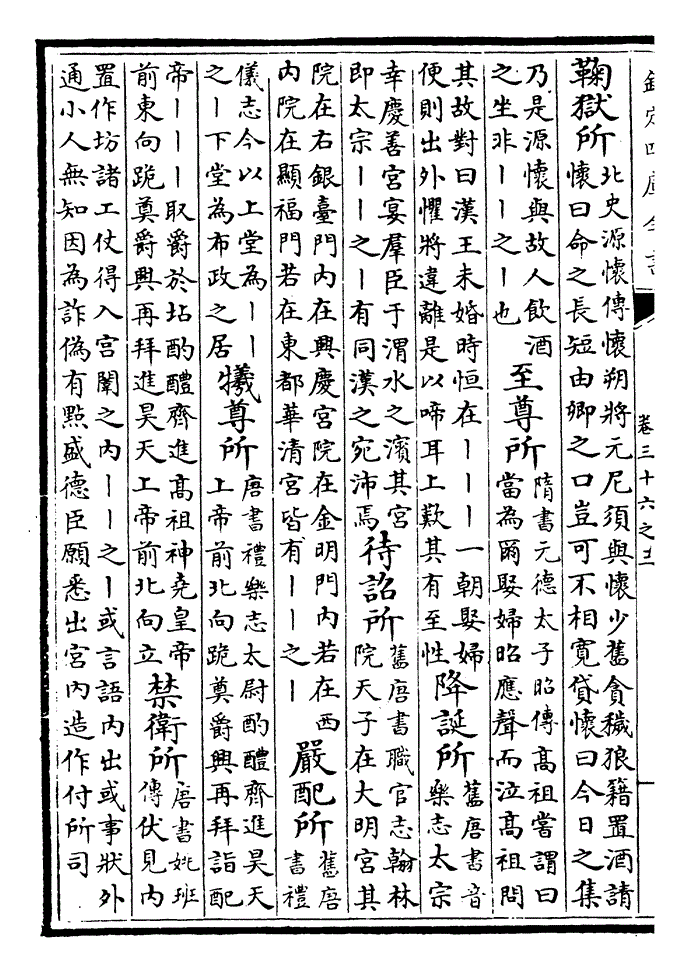 欽定四庫全書
卷三十六之
鞫獄所
北史源懷傳懷朔將元尼須與懷少舊貪穢狼籍置酒請
懷曰命之長短由卿之口豈可不相寛貸懷曰今日之集
乃是源懷與故人飲酒
之坐非||之|也
至尊所
隋書元德太子昭傳髙祖嘗謂曰
當為爾娶婦昭應聲而泣髙祖問
其故對曰漢王未婚時恒在|||一朝娶婦
便則出外懼將違離是以啼耳上歎其有至性
降誕所
舊唐書音
樂志太宗
幸慶善宮宴羣臣于渭水之濱其宮
即太宗||之|有同漢之宛沛焉
待詔所
舊唐書職官志翰林
院天子在大明宮其
院在右銀臺門内在興慶宮院在金明門内若在西
内院在顯福門若在東都華清宮皆有||之|
嚴配所
舊唐
書禮
儀志今以上堂為||
之|下堂為布政之居
犧尊所
唐書禮樂志太尉酌醴齊進昊天
上帝前北向跪奠爵興再拜詣配
帝|||取爵於坫酌醴齊進髙祖神堯皇帝
前東向跪奠爵興再拜進昊天上帝前北向立
禁衛所
唐書姚班
傳伏見内
置作坊諸工仗得入宮闈之内||之|或言語内出或事狀外
通小人無知因為詐偽有點盛德臣願悉出宮内造作付所司